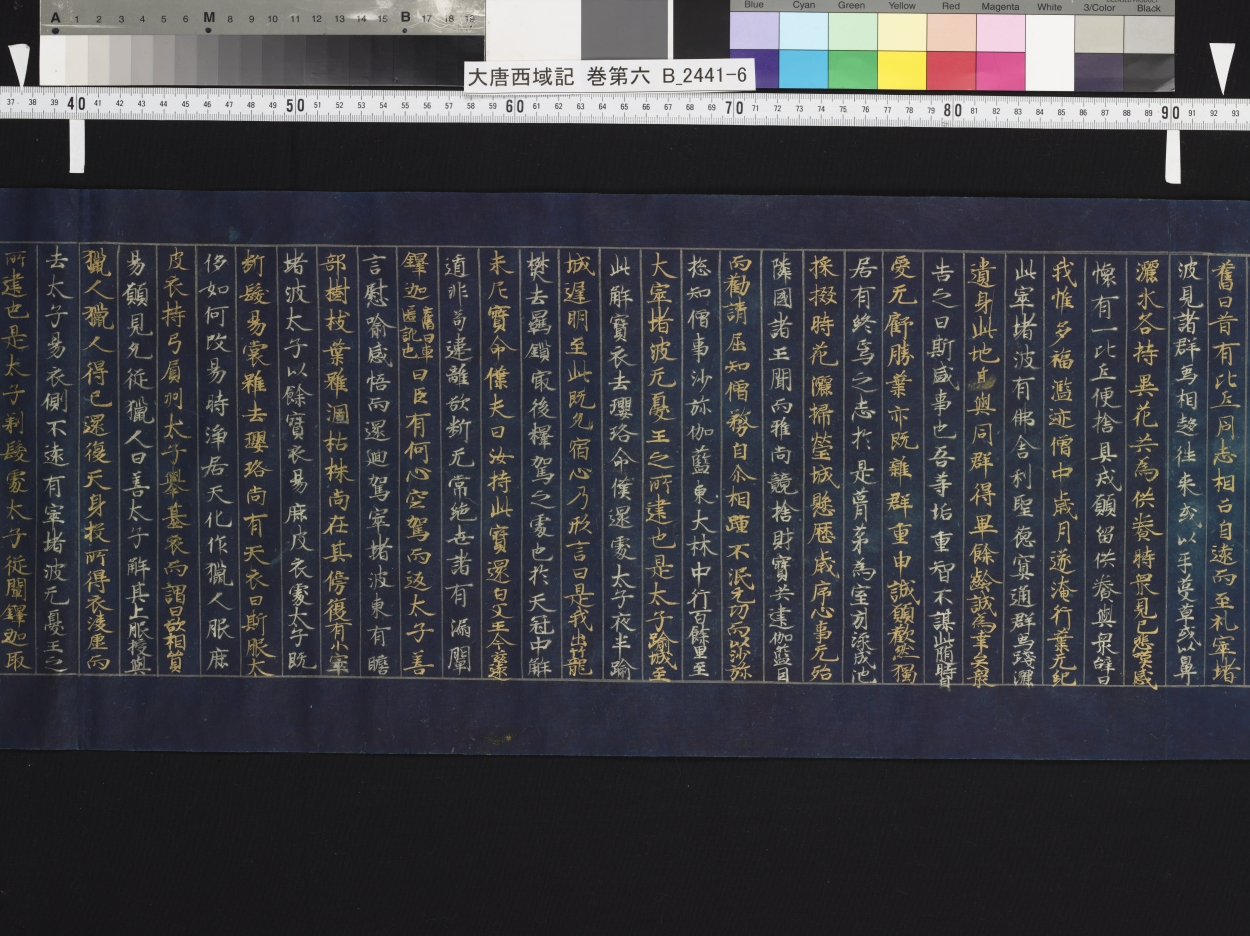 大唐西域記 巻第六 B_2441-6
舊曰昔有比丘同志相召自遠而至礼窣堵
波見諸群鳥相趍徃来或以手蔓草或以鼻
灑水各持異花共為供養時衆見已悲歎感
懐有一比丘便捨具戒願留供養與衆辞曰
我惟多福濫迹僧中歳月遂淹行業无紀
此窣堵波有佛舎利聖德冥通群鳥踐灑
遺身此地與同群得畢餘齡誠為幸矣衆
告之曰斯盛事也吾等垢重智不謀此隨時
愛无虧勝業亦既離群重申誠願歡然獨
居有終焉之志於是葺茅為室引流成池
採掇時花灑掃瑩域懸歴歳序心事无殆
隣國諸王聞而雅尚競捨財寶共建伽藍因
而勸請屈知僧務自尒相踵不泯元功而以沙弥
捴知僧事沙弥伽藍東大林中行百餘里至
大窣堵波无憂王之所建也是太子踰城至
此解寶衣去瓔珞命僕還處太子夜半踰
城遲明至此既允宿心乃形言曰是我出籠
樊去羈鎻冣後釋駕之處也於天冠中解
末尼寶命僕夫曰汝持此寶還白父王今茲遠
遁非苟違離欲断无常絶諸有漏闡
鐸迦舊曰車匿訛也曰臣有何心空駕而返太子善
言慰喩感悟而還迴駕窣堵波東有贍
部樹枝葉雖凋枯株尚在其傍復有小窣
堵波太子以餘寶衣易麻皮衣處太子既
断髮易裳雖去瓔珞尚有天衣曰斯服太
侈如何改易時淨居天化作獵人服麻
皮衣持弓負羽太子舉其衣而謂曰欲相貿
易願見允從獵人曰善太子解其上服授與
獵人獵人得已還復天身投所得衣淩虗而
去太子易衣側不遠有窣堵波无憂王之
所建也是太子剃髮處太子從闡鐸迦取